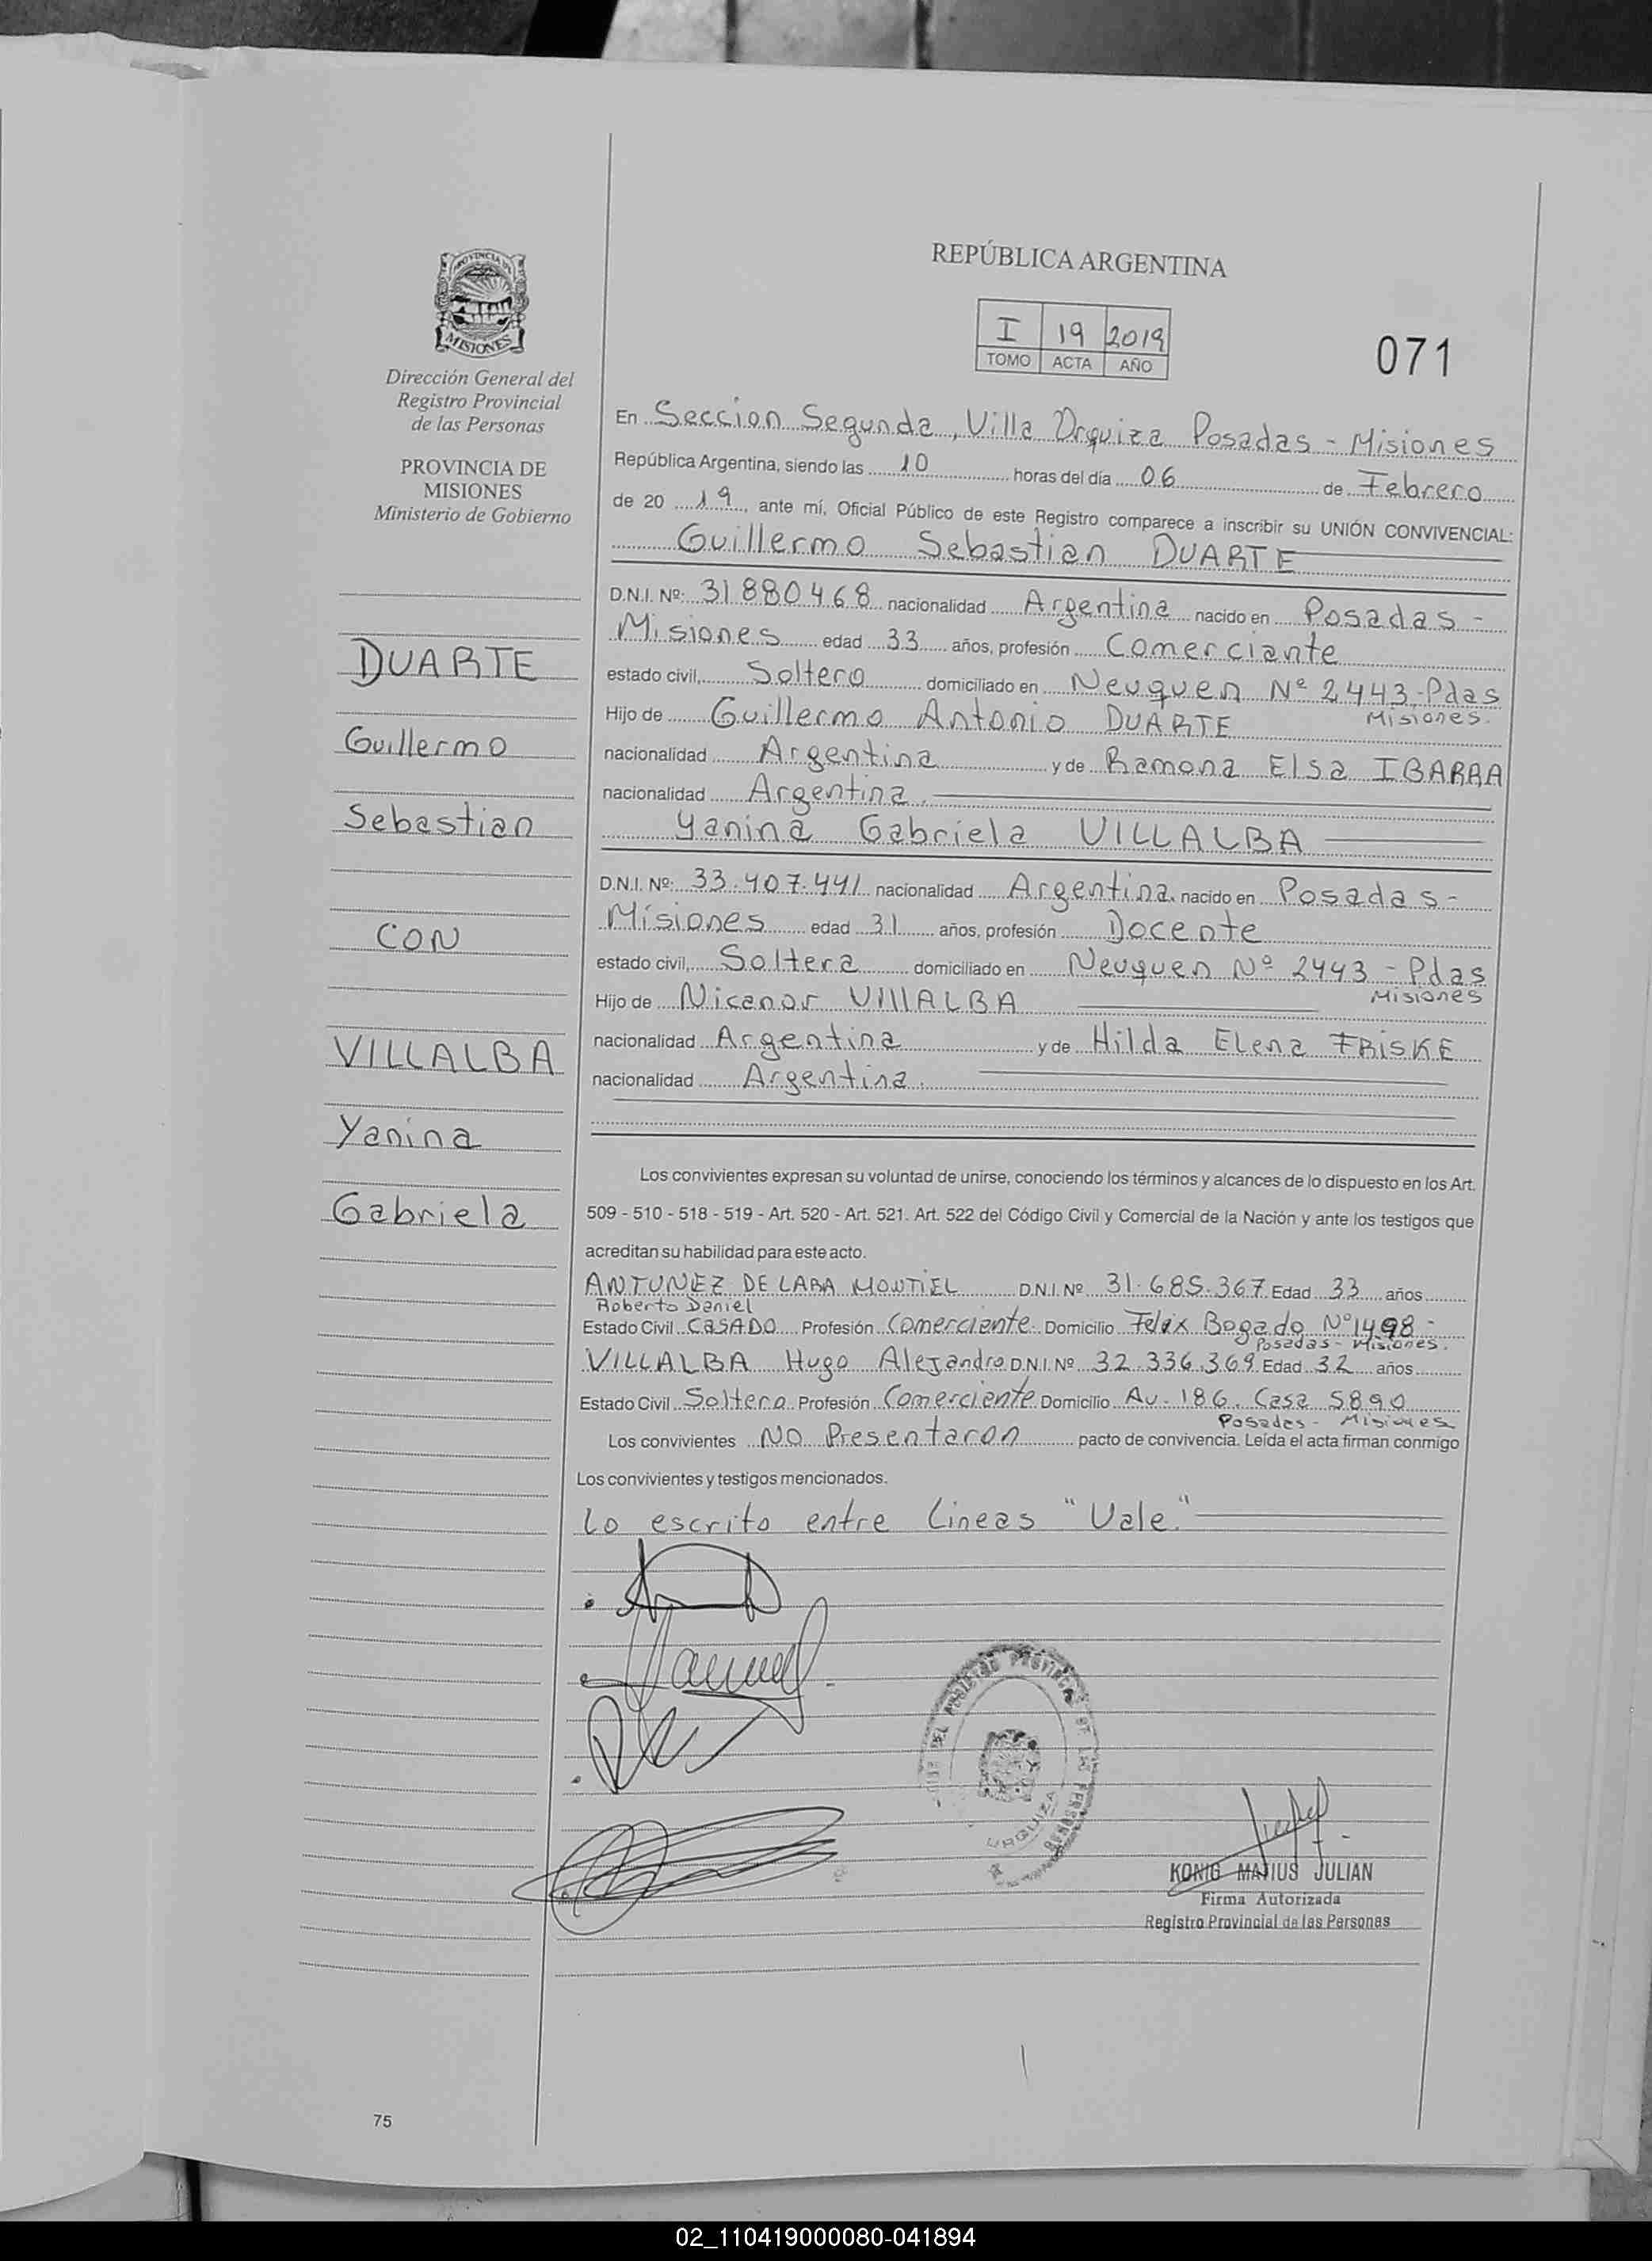 REPÚBLICA ARGENTINA
I 19 2019
TOMO ACTA AÑO
071
PROVINCIA DE
MISIONES
Dirección General del
Registro Provincial
de las Personas
PROVINCIA DE
MISIONES
Ministerio de Gobierno
DUARTE
Guillermo
Sebastian
CON
VILLALBA
Yanina
Gabriela
En Seccion Segunda, Villa Urquiza Posadas - Misiones
República Argentina, siendo las 10 horas del día 06 de Febrero
de 20 19, ante mí, Oficial Público de este Registro comparece a inscribir su UNIÓN CONVIVENCIAL:
Guillermo Sebastian DUARTE
D.N.I. Nº: 31880468 nacionalidad Argentina nacido en Posadas -
Misiones edad 33 años, profesión Comerciante
estado civil, Soltero domiciliado en Neuquen Nº 2443-Pdas
Misiones.
Hijo de Guillermo Antonio DUARTE
nacionalidad Argentina y de Ramona Elsa IBARRA
nacionalidad Argentina.
Yanina Gabriela VILLALBA
D.N.I. Nº: 33.407.441 nacionalidad Argentina. nacido en Posadas -
Misiones edad 31 años, profesión Docente
estado civil, Soltera domiciliado en Neuquen Nº 2443 - Pdas
Misiones
Hijo de Nicanor VIllALBA
nacionalidad Argentina y de Hilda Elena FRISKE
nacionalidad Argentina.
Los convivientes expresan su voluntad de unirse, conociendo los términos y alcances de lo dispuesto en los Art.
509 - 510 - 518 - 519 - Art. 520 - Art. 521. Art. 522 del Código Civil y Comercial de la Nación y ante los testigos que
acreditan su habilidad para este acto.
ANTUNEZ DE LARA MONTIEL D.N.I. Nº 31.685.367 Edad 33 años
Roberto Daniel
Estado Civil CASADO Profesión Comerciante Domicilio Felix Bogado Nº1498 -
Posadas - Misiones.
VILLALBA Hugo Alejandro D.N.I. Nº 32.336.369 Edad 32 años
Estado Civil Soltero Profesión Comerciante Domicilio Av. 186. Casa 5890
Posadas - Misiones
Los convivientes NO Presentaron pacto de convivencia. Leída el acta firman conmigo
Los convivientes y testigos mencionados.
Lo escrito entre Lineas "Vale."
URGUIZA
KONIG MATIUS JULIAN
Firma Autorizada
Registro Provincial de las Personas
75
02_110419000080-041894